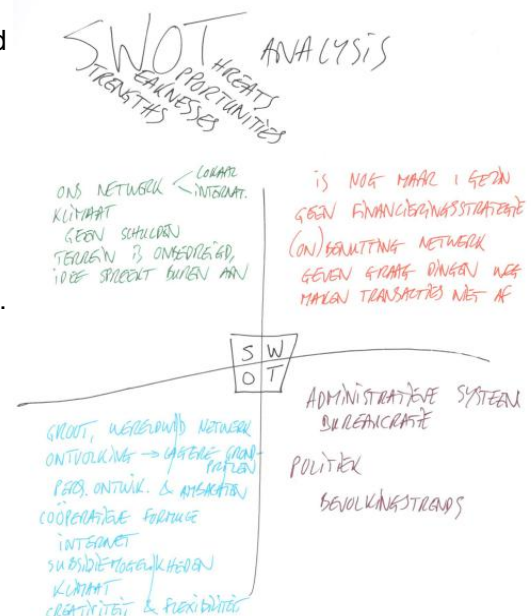 SWOT ANALYSIS
STRENGTHS
WEAKNESSES
OPPORTUNITIES
THREATS
ONS NETWERK < LOKAAL
INTERNAT.
KLIMAAT
GEEN SCHULDEN
TERREIN IS ONBEDREIGD,
IDEE SPREEKT BUREN AAN
IS NOG MAAR 1 GEZIN
GEEN FINANCIERINGSSTRATEGIE
(ON)BENUTTING NETWERK
GEVEN GRAAG DINGEN WEG
MAKEN TRANSACTIES NIET AF
S W
O T
GROOT, WERELDWIJD NETWERK
ONTVOLKING → LAGERE GROND-
PRIJZEN
PERS. ONTWIK. & AMBACHTEN
COÖPERATIEVE FORMULE
INTERNET
SUBSIDIEMOGELIJKHEDEN
KLIMAAT
CREATIVITEIT & FLEXIBILITEIT
ADMINISTRATIEVE SYSTEEM
BUREAUCRATIE
POLITIEK
BEVOLKINGSTRENDS